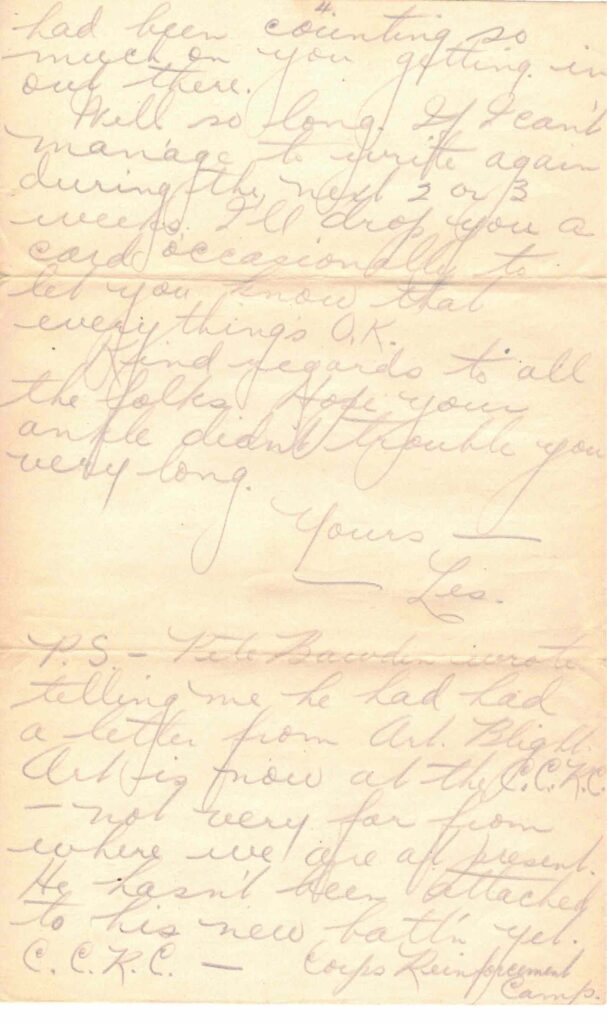 4
had been counting so
much on you getting in
out there.
Well so long. If I can't
manage to write again
during the next 2 or 3
weeks I'll drop you a
card occasionally to
let you know that
everythings O.K.
Kind regards to all
the folks. Hope your
ankle didn't trouble you
very long.
Yours —
— Les.
P.S. — Pete Bawden wrote
telling me he had had
a letter from Art. Blight.
Art is now at the C.C.R.C.
— not very far from
where we are at present.
He hasn't been attached
to his new batt'n yet.
C.C.R.C. — Corps Reinforcement
Camp.